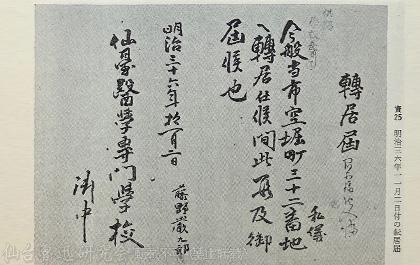 轉居届
私儀
今般当市空堀町三十二番地
へ轉居仕候間此段及御
届候也
明治三十六年拾一月二日
藤野嚴九郎
仙臺醫學專門學校
御中
資25 明治三六年一一月二日付の転居届